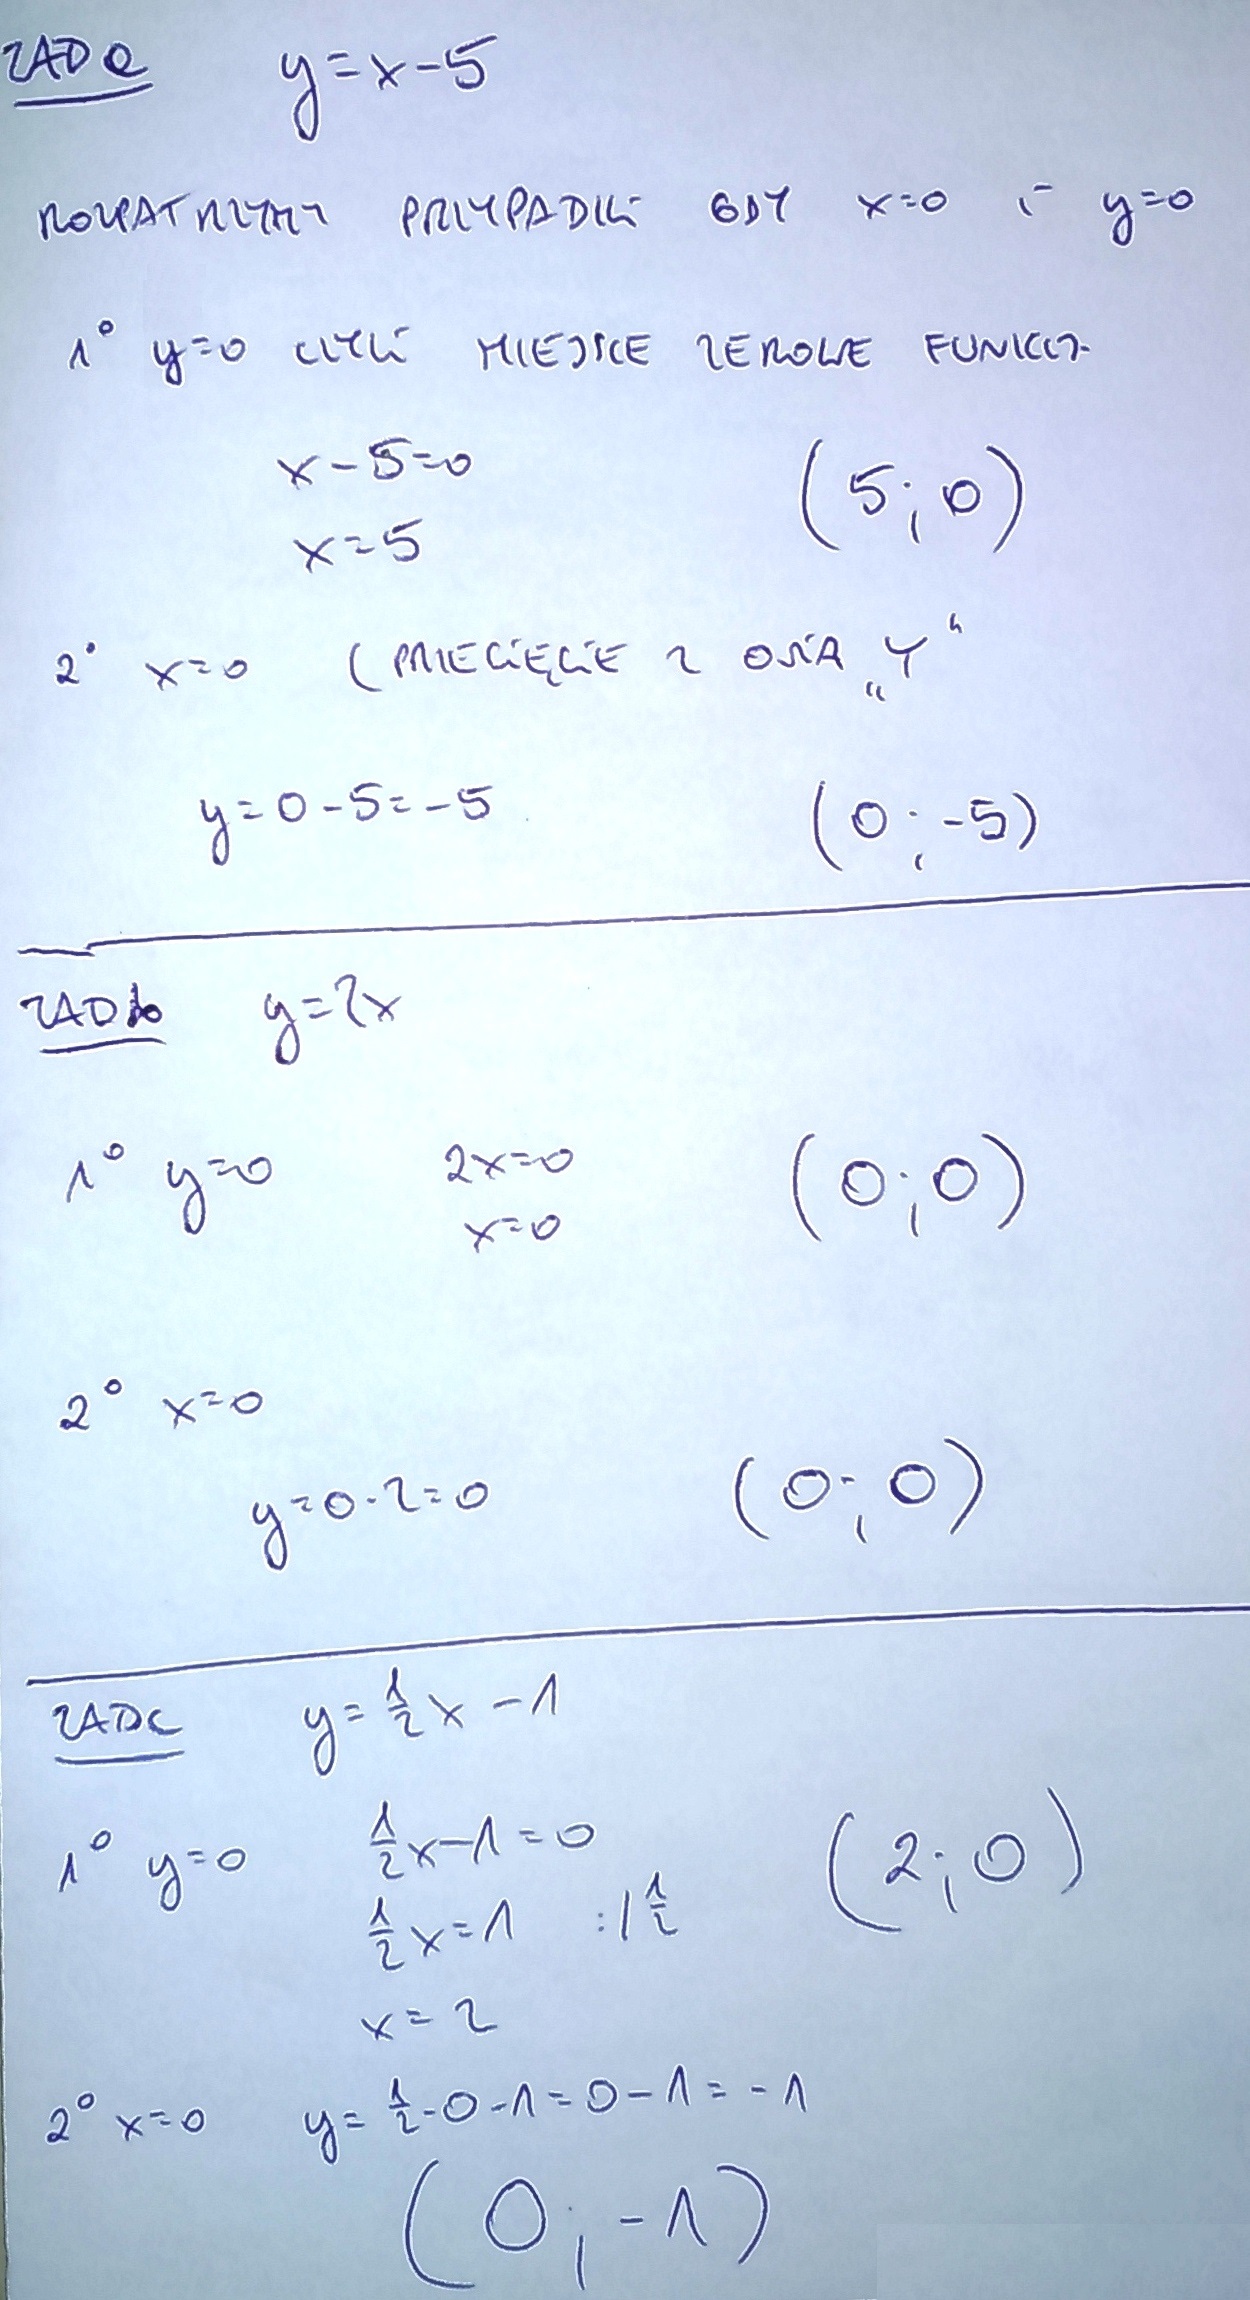 ZAD a y=x-5
ROZPATRZMY PRZYPADKI GDY x=0 i y=0
1° y=0 CZYLI MIEJSCE ZEROWE FUNKCJI
x-5=0 (5;0)
x=5
2° x=0 (PRZECIĘCIE Z OSIĄ „Y“
y=0-5=-5 (0;-5)
ZAD b y=2x
1° y=0 2x=0 (0;0)
x=0
2° x=0
y=0·2=0 (0;0)
ZAD C y=½x-1
1° y=0 ½x-1=0 (2;0)
½x=1 :/½
x=2
2° x=0 y=½·0-1=0-1=-1
(0;-1)